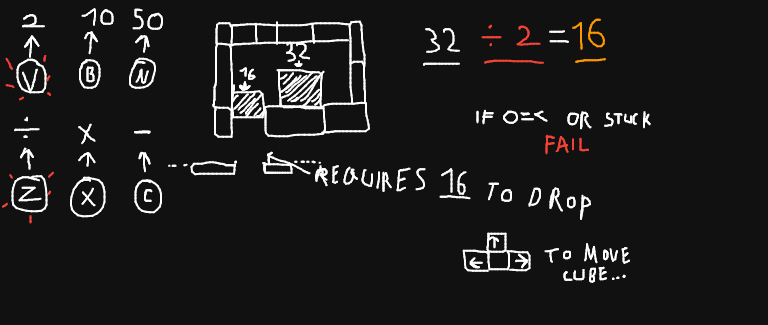 2 10 50
V B N
÷ x -
Z X C
32
16
32 ÷ 2 = 16
IF 0=< OR STUCK
FAIL
REQUIRES 16 TO DROP
← ↑ →
TO MOVE
CUBE...